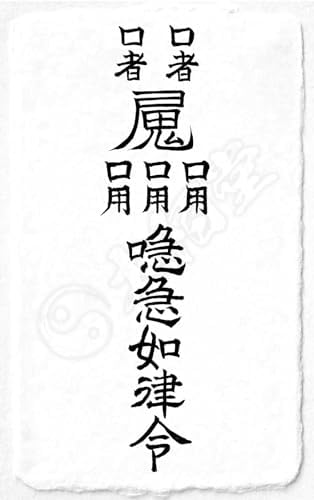 口 口
者 者
口 口 口
用 用 用
喼急如律令